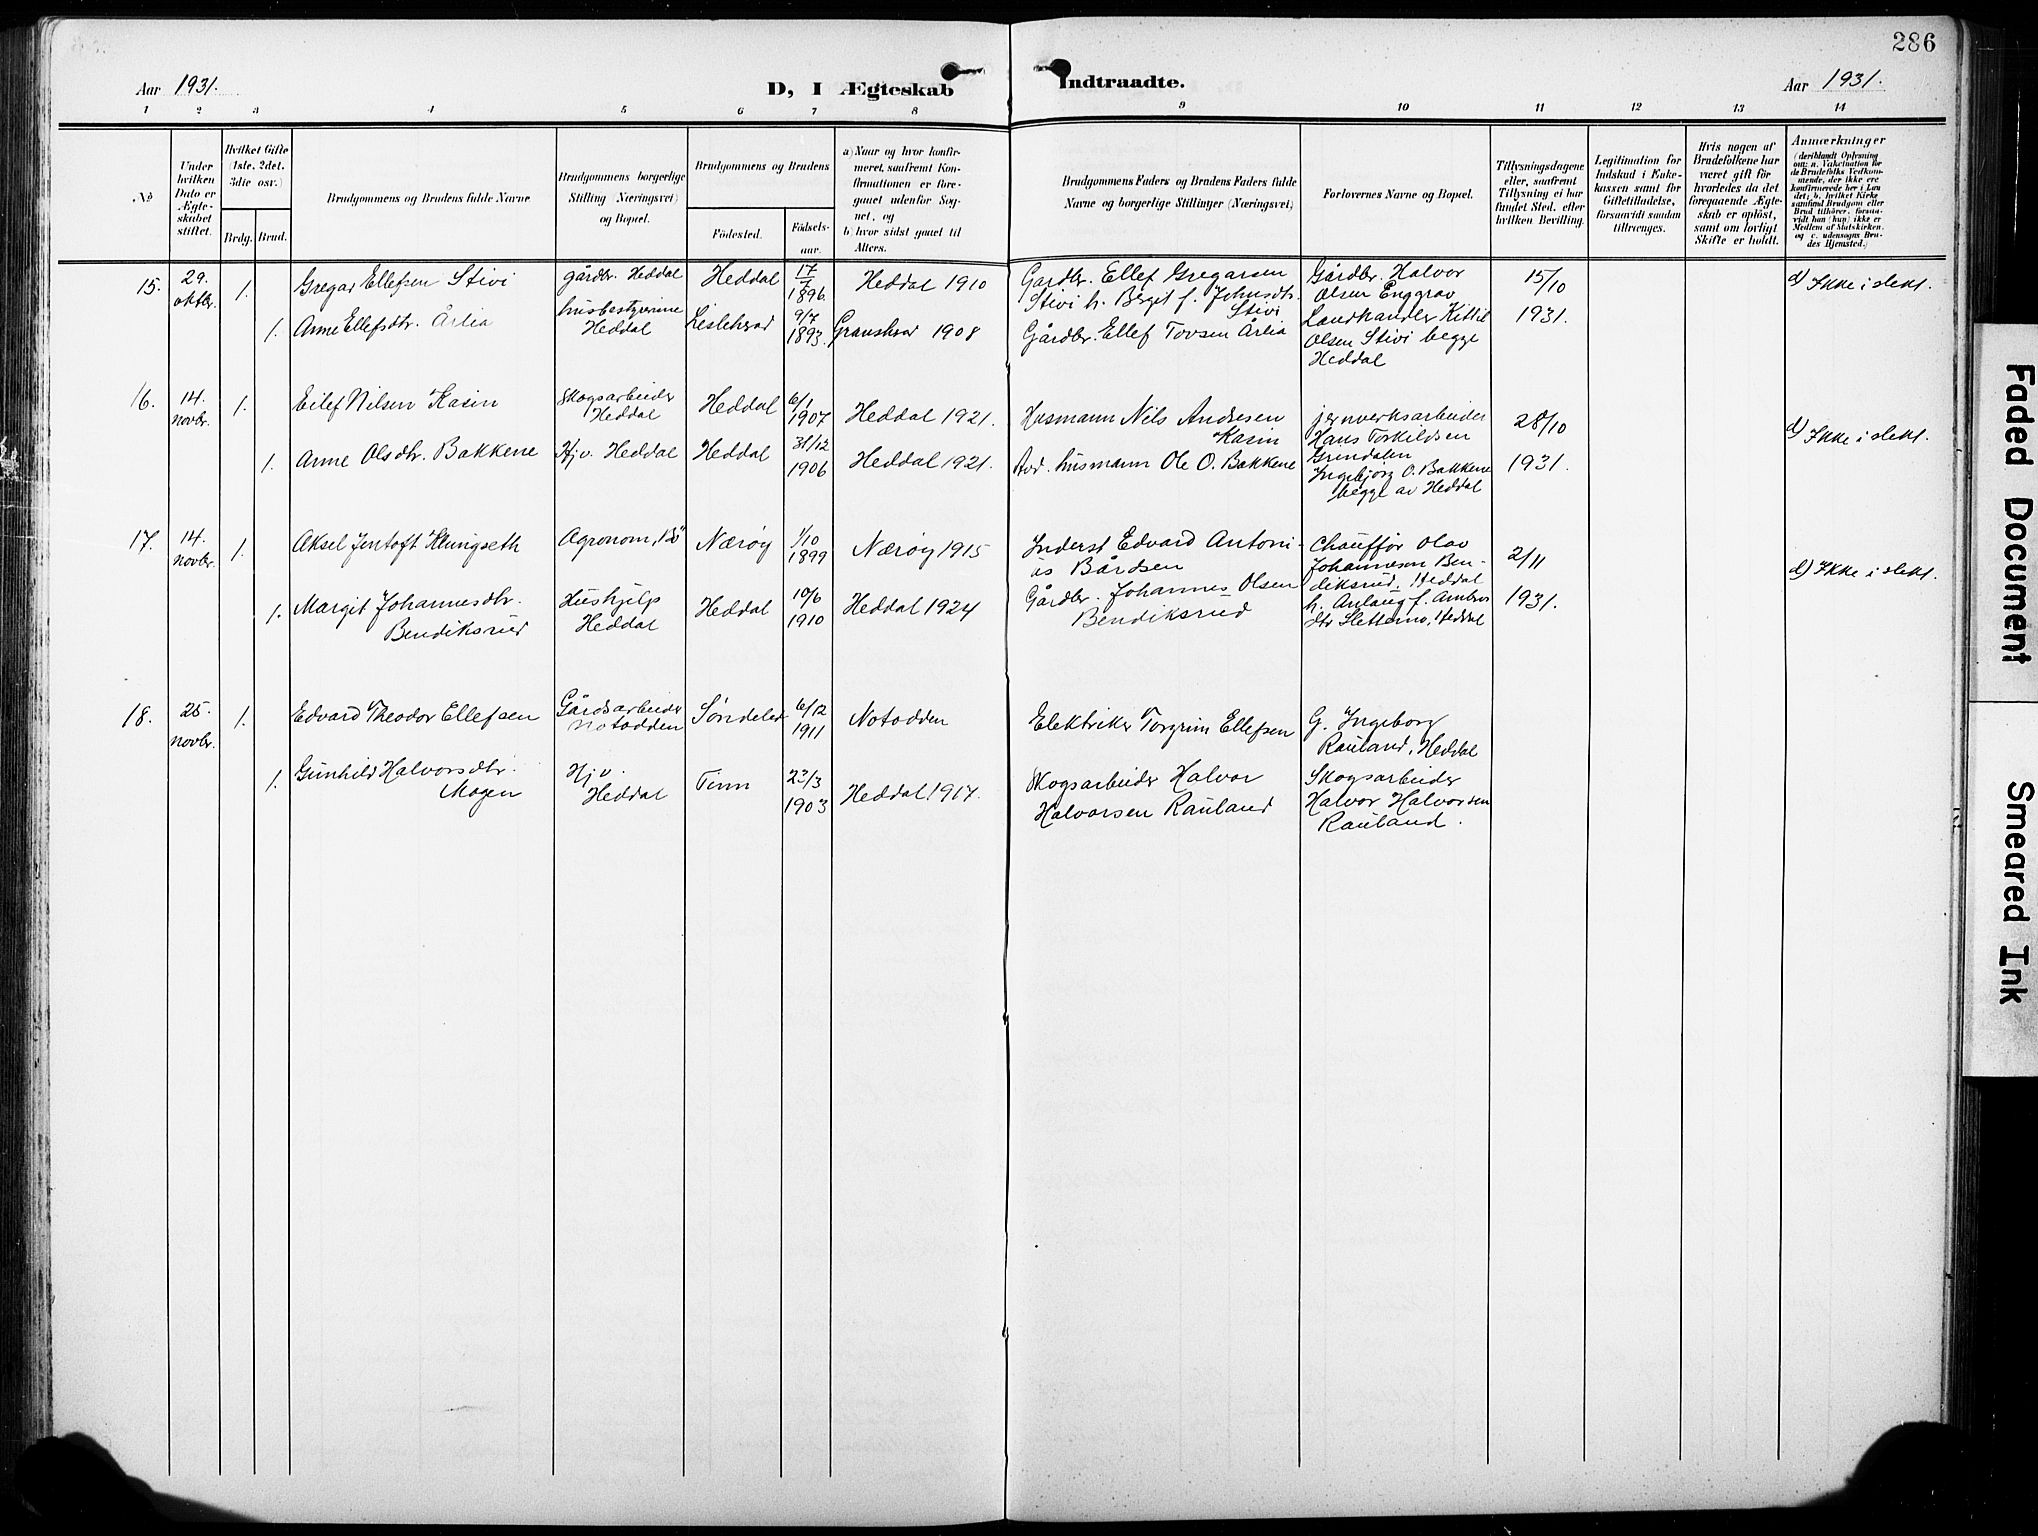 286
Aar 1931.
D, I Ægteskab Indtraadte.
Aar 1931.
1 2 3 4 5 6 7 8 9 10 11 12 13 14
No
Under
hvilken
Dato er
Ægte-
skabet
stiftet.
Hvilket Gifte
(1ste, 2det.
3die osv.)
Brdg. Brud.
Brudgommens og Brudens fulde Navne.
Brudgommens borgerlige
Stilling (Næringsvei)
og Bopæl.
Brudgommens og Brudens
Fødested.
Fødsels-
aar.
a) Naar og hvor konfir-
meret, saafremt Kon-
firmationen er fore-
gaaet udenfor Sog-
net, og
b) hvor sidst gaaet til
Alters.
Brudgommens Faders og Brudens Faders fulde
Navne og borgerlige Stillinger (Næringsvei)
Forlovernes Navne og Bopæl.
Tillysningsdagene
eller, saafremt
Tillysning ei har
fundet Sted, efter
hvilken Bevilling.
Legitimation for
Indskud i Enke-
kassen samt for
Giftetilladelse,
forsaavidt saadan
tiltrænges.
Hvis nogen af
Brudefolkene har
været gift før
hvorledes da det
foregaaende Ægte-
skab er opløst,
samt om lovligt
Skifte er holdt.
Anmærkninger
(deriblandt Oplysning
om: a. Vakcination for
de Brudefolks Vedkom-
mende, der ikke ere
konfirmerede her i Lan
det; b. hvilket Kirke
samfund Brudgom eller
Brud tilhører, forsaa-
vidt han (hun) ikke er
Medlem af Statskirken.
og c. udensogns Bru-
des Hjemsted.)
15. 29. oktbr. 1. Gregar Ellefsen Stivi gårdbr. Heddal Heddal 17/7 1896. Heddal 1910 Gardbr. Ellef Gregarsen
Stivi h. Birgit f. Johnsdtr.
Stivi
Gårdbr. Halvor
Olsen Enggrav
15/10
1931.
d) Ikke i slekt.
1. Anne Ellefsdtr. Årlia husbestyrerinne
Heddal
Lisleherad 9/7 1893. Gransherad 1908 Gårdbr. Ellef Tovsen Årlia
Landhandler Kittil
Olsen Stivi begge
Heddal
16. 14. novbr. 1. Eilef Nilsen Kasin Skogsarbeider
Heddal
Heddal 6/1 1907 Heddal 1921. Husmann Nils Andresen
Kasin
jernverksarbeider
Hans Torkildsen
Grendalen
28/10
1931.
d) Ikke i slekt.
1. Anne Olsdtr. Bakkene Hjv. Heddal Heddal 31/12 1906 Heddal 1921. Avd. husmann Ole O. Bakkene
Ingebjørg O. Bakkene
begge av Heddal
17. 14. novbr. 1. Aksel Jentoft Klungseth Agronom, Bø Nærøy 1/10 1899 Nærøy 1915 Inderst Edvard Antoni-
us Bårdsen
Chauffør Olav
Johannesen Ben-
diksrud, Heddal
2/11
1931.
d) Ikke i slekt.
1. Margit Johannesdtr.
Bendiksrud
Hushjelp
Heddal
Heddal 10/6 1910 Heddal 1924 Gårdbr. Johannes Olsen
Bendiksrud
h. Anlaug f. Ambros
dtr Sletterno, Heddal
18. 25. novbr. 1. Edvard Theodor Ellefsen Gårdsarbeider
Notodden
Søndeled 6/12 1911 Notodden Elektriker Torgrim Ellefsen
G. Ingeborg
Rauland, Heddal
1. Gunhild Halvorsdtr.
Mogen
Hjv.
Heddal
Tinn 23/3 1903 Heddal 1917. Skogsarbeider Halvor
Halvorsen Rauland
Skogsarbeider
Halvor Halvorsen
Rauland.
Faded Document
Smeared Ink